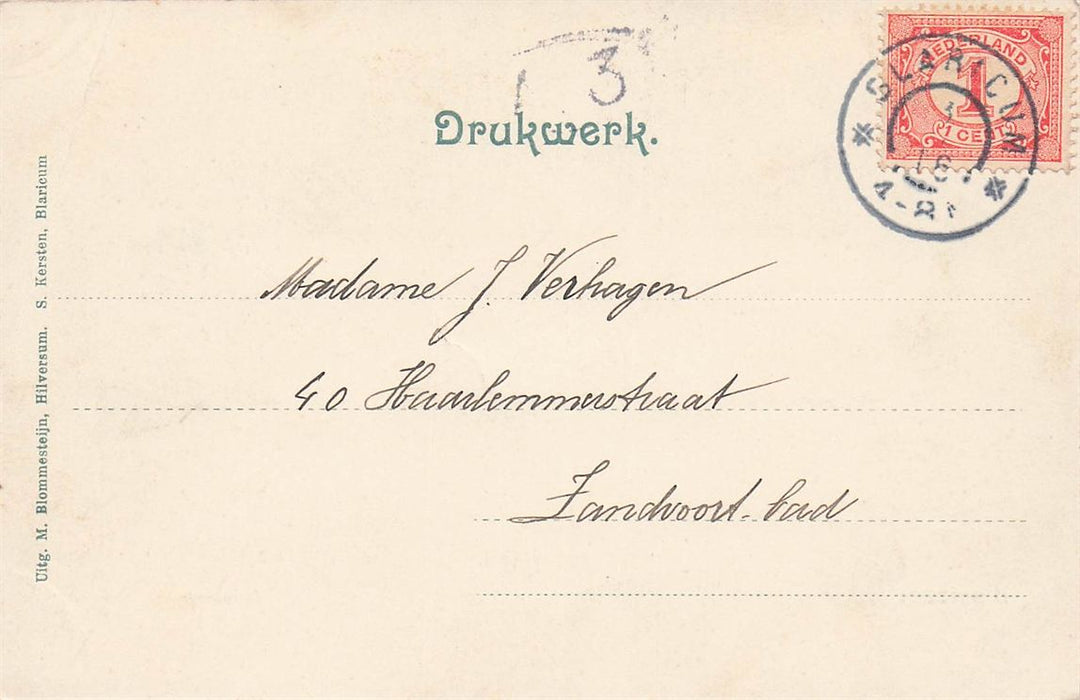 3
Drukwerk.
NEDERLAND
1
1 CENT
BLARICUM
4-8
Madame J. Verhagen
40 Haarlemmerstraat
Zandvoort-bad
Uitg. M. Blommesteijn, Hilversum. S. Kersten, Blaricum